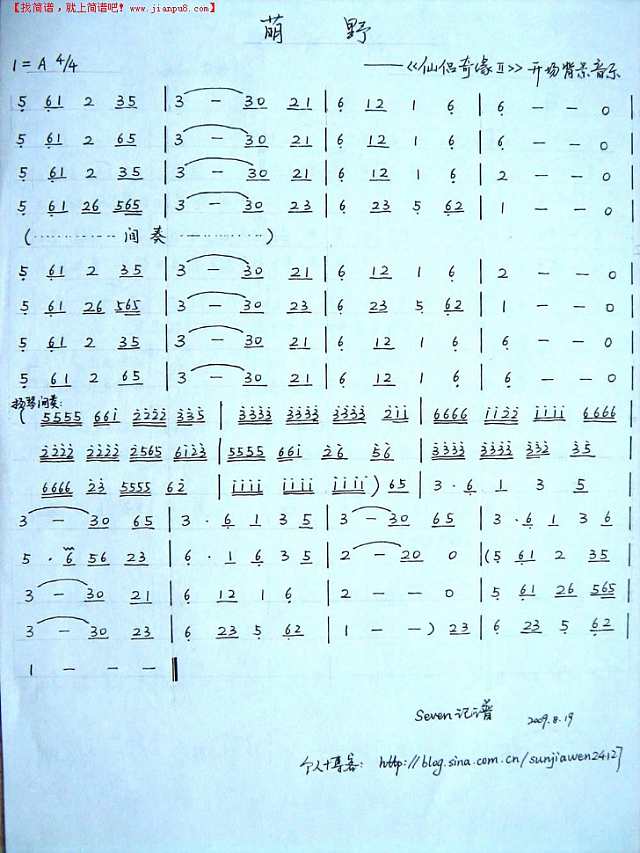 【找简谱，就上简谱吧! www.jianpu8.com】
萌 野
1=A 4/4 ——《仙侣奇缘Ⅱ》开场背景音乐
5 61 2 35 | 3 — 30 21 | 6 12 1 6 | 6 — — 0 |
5 61 2 65 | 3 — 30 21 | 6 12 1 6 | 6 — — 0 |
5 61 2 35 | 3 — 30 21 | 6 12 1 6 | 2 — — 0 |
5 61 26 565 | 3 — 30 23 | 6 23 5 62 | 1 — — 0 |
(………… 间奏 …………)
5 61 2 35 | 3 — 30 21 | 6 12 1 6 | 2 — — 0 |
5 61 26 565 | 3 — 30 23 | 6 23 5 62 | 1 — — 0 |
5 61 2 35 | 3 — 30 21 | 6 12 1 6 | 6 — — 0 |
5 61 2 65 | 3 — 30 21 | 6 12 1 6 | 6 — — 0 |
扬琴间奏:
(5555 661 2222 335 | 3333 3333 3333 211 | 6666 1122 1111 6666 |
2222 2222 2565 6123 | 5555 661 26 56 | 3333 3333 332 35 |
6666 23 5555 62 | 1111 1111 1111) 65 | 3 · 6 1 3 5 |
3 — 30 65 | 3 · 6 1 3 5 | 3 — 30 65 | 3 · 6 1 3 6 |
5 · 6 56 23 | 6 · 1 6 3 5 | 2 — 20 0 | (5 61 2 35 |
3 — 30 21 | 6 12 1 6 | 2 — — 0 | 5 61 26 565 |
3 — 30 23 | 6 23 5 62 | 1 — — ) 23 | 6 23 5 62 |
1 — — — ‖
Seven记谱 2009.8.19
个人博客: http://blog.sina.com.cn/sunjiawen24127